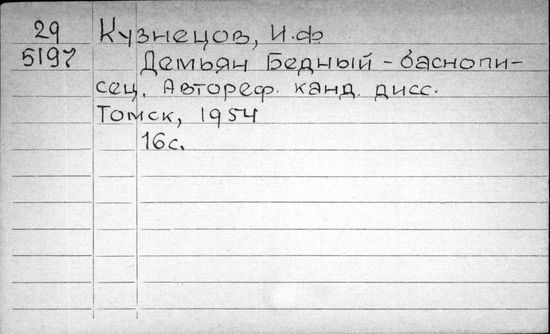 29 Кузнецов, И.Ф
5197 Демьян Бедный - баснопи-
сец. Автореф. канд. дисс.
Томск, 1954
16с.